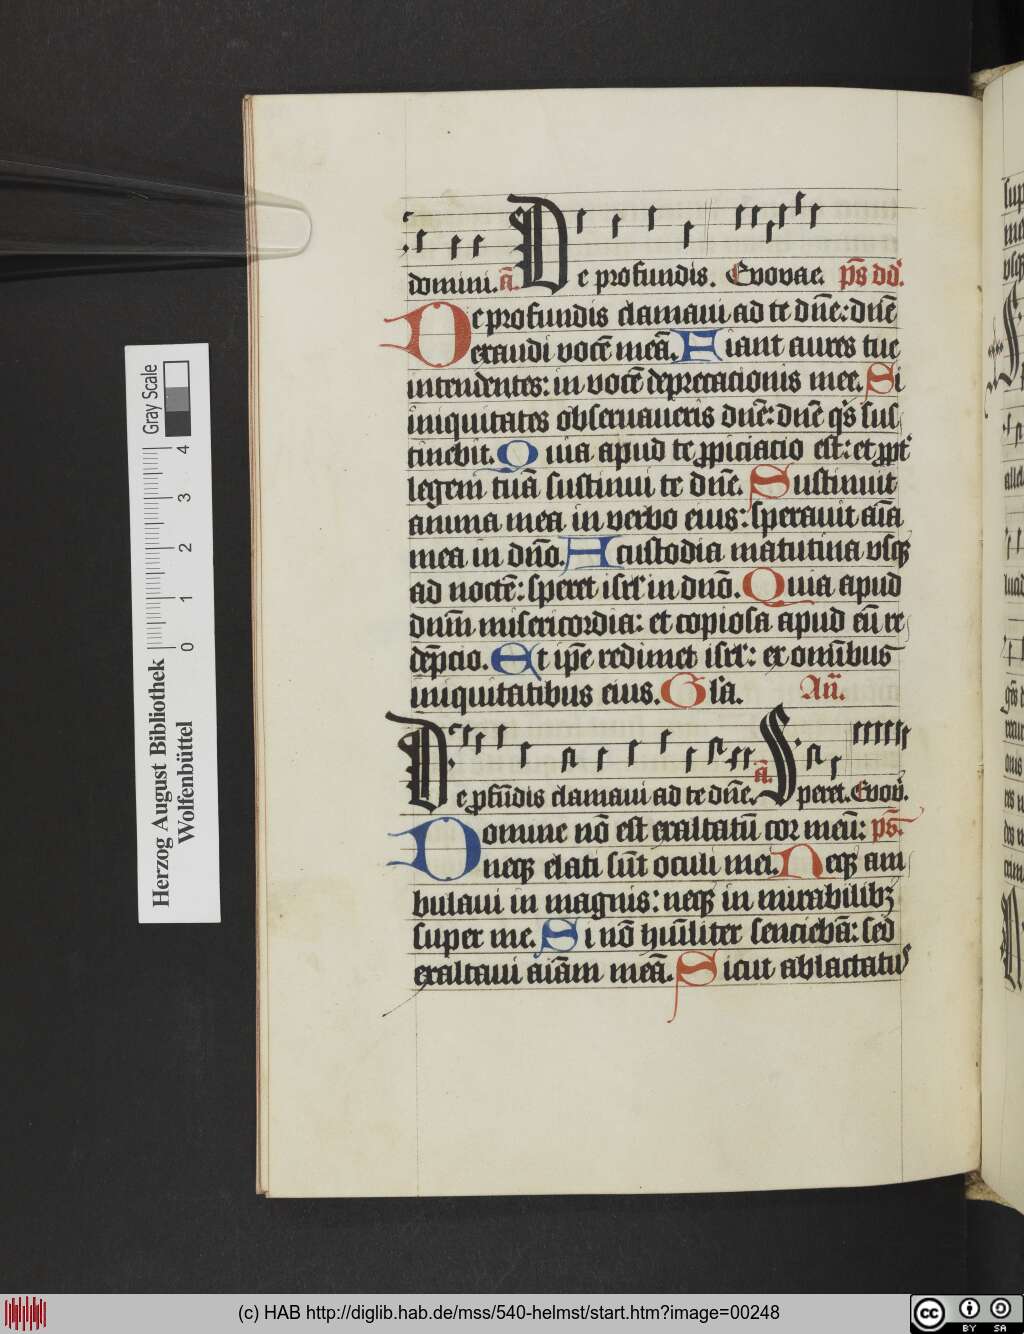 domini. a̅. De profundis. Evovae. p̅s dd̉.
De profundis clamaui ad te dn̅e: dn̅e
exaudi voce̅ mea̅. Fiant aures tue
intendentes: in voce̅ deprecacionis mee. Si
iniquitates obseruaueris dn̅e: dn̅e q̉s sus
tinebit. Quia apud te ꝓpiciacio est: et ꝓpt̉
legem tua̅ sustinui te dn̅e. Sustinuit
anima mea in verbo eius: sperauit ai̅a
mea in dn̅o. A custodia matutina vsqꝫ
ad nocte̅: speret isrl̓ in dn̅o. Quia apud
dnm̅ misericordia: et copiosa apud eu̅ re
de̅pcio. Et ip̅e redimet isrl̓: ex omi̅bus
iniquitatibus eius. Gl̓a. An̅.
De ꝓfu̅dis clamaui ad te dn̅e. a̅. Speret. Evov̉.
Domine no̅ est exaltatu̅ cor meu̅: p̅s.
neqꝫ elati su̅t oculi mei. Neqꝫ am
bulaui in magnis: neqꝫ in mirabilibꝫ
super me. Si no̅ hu̅iliter sencieba̅: sed
exaltaui ai̅am mea̅. Sicut ablactatus
Herzog August Bibliothek
Wolfenbüttel
Gray Scale
0 1 2 3 4
(c) HAB http://diglib.hab.de/mss/540-helmst/start.htm?image=00248
cc BY SA